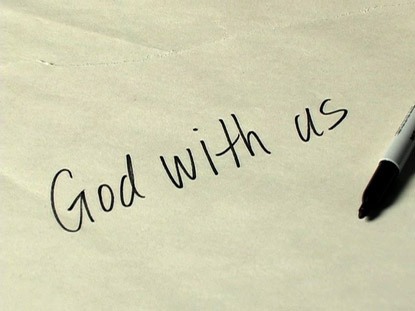 God with us